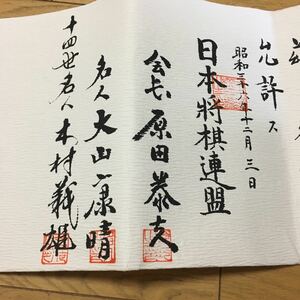 允許ス
昭和三十八年十二月三日
日本將棋連盟
会長 原田泰夫
名人 大山康晴
十四世名人 木村義雄